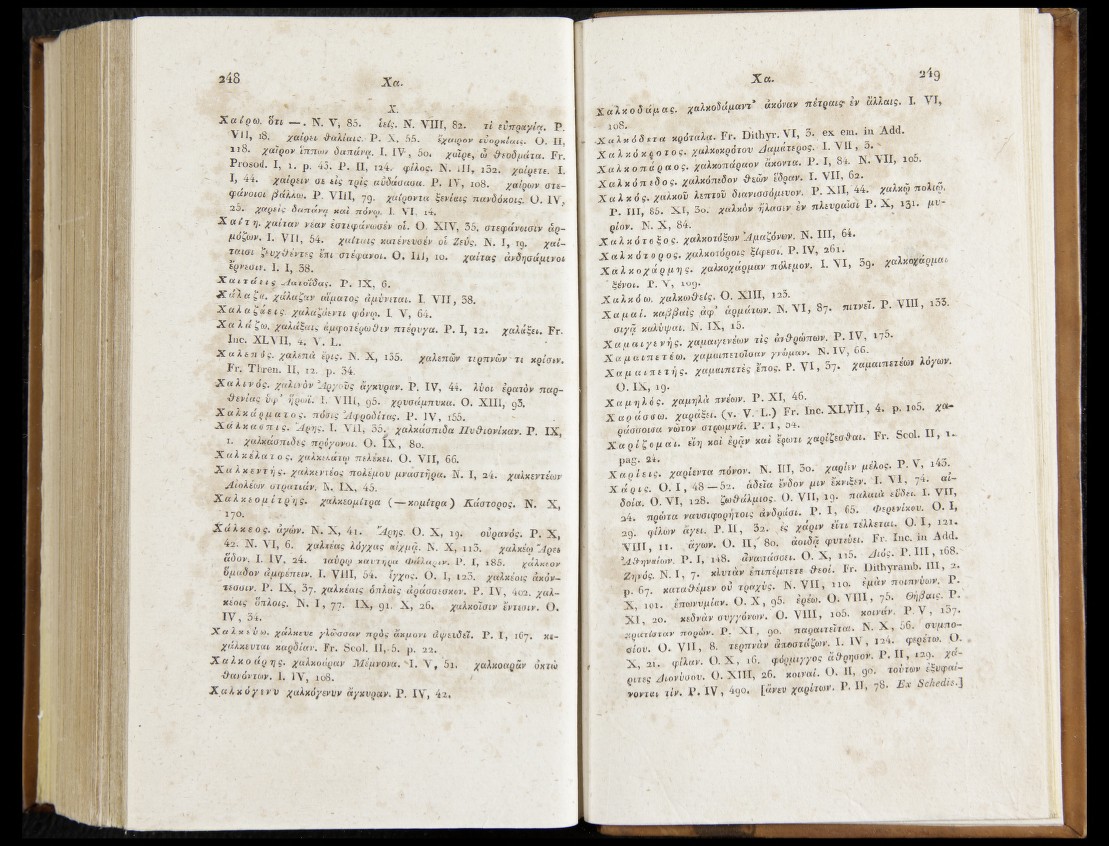 248
Χα.
X.
Χαίρω. ὅτι —. N. V, 85. N. VIII, 82. τί εὐπραγίᾳ. P.
VII, 18. χαίρει θαλίαις. P. X, 55. ἔχαιρον εὐορκίαις. O. II,
118. χαῖρον ἵππων δαπάνᾳ. I. IV, 50. χαῖρε, ὦ θεοδμάτα. Fr.
Prosod. I, 1. p. 45. P. II, 124. φίλος. N. III, 132. χαίρετε. I.
I, 44. χαίρειν σε εἰς τρὶς αὐδάσασα. P. IV, 108. χαίρων στε-
φάνοισι βάλλω. P. VIII, 79. χαίροντα ξενίαις πανδόκοις. O. IV,
25. χαρεὶς δαπάνᾳ καὶ πόνῳ. I. VI, 14.
Χαίτη. χαίταν νέαν ἐστεφάνωσέν οἱ. O. XIV, 35. στεφάνοισιν ἁρ-
μόζων. I. VII, 54. χαίταις κατένευσέν οἱ Ζεύς. N. I, 19. χαί-
ταισι ζευχθέντες ἔπι στέφανοι. O. III, 10. χαίτας ἀνδησάμενοι
ἔρνεσιν. I. I, 38.
P. IX, 6.
Χάλαζα. χάλαζαν αἵματος ἀμύνεται. I. VII, 38.
Χαλαζάεις χαλαζάεντι φόνῳ. I. V, 64.
Χαλάζω. χαλάξαις ἀμφοτέρωθεν πτέρυγα. P. I, 12. χαλάξει. Fr.
Inc. XLVII, 4. V. L.
Χαλεπός. χαλεπὰ ἔρις. N. X, 135. χαλεπῶν τερπνῶν τι κρίσιν.
Fr. Thren. II, 12. p. 34.
Χαλινός. χαλινὸν Ἀργοῦς ἄγκυραν. P. IV, 44. λύοι ἐρατὸν παρ-
θενίας ὑφ᾽ ἥρωϊ. I. VIII, 95. χρυσάμπυκα. O. XIII, 93.
Χαλκάρματος. πόσις Ἀφροδίτας. P. IV, 155.
Χάλκασπις. Ἄρης. I. VII, 35. χαλκάσπιδα Πυθιονίκαν. P. IX,
1. χαλκάσπιδες πρόγονοι. O. IX, 80.
Χαλκέλατος. χαλκελάτῳ πελέκει. O. VII, 66.
Χαλκεντής. χαλκεντέος πολέμου μναστῆρα. N. I, 24. χαλκεντέων
Αἰολέων στρατιάν. N. IX, 45.
Χαλκεομίτρης. χαλκεομίτρα (—κομίτρα) Κάστορος. N. X,
170.
Χάλκεος. ἀγών. N. X, 41. Ἄρης. O. X, 19. οὐρανός. P. X,
42. N. VI, 6. χαλκέας λόγχας αἰχμᾷ. N. X, 113. χαλκέῳ Ἄρει
ἅδον. I. IV, 24. ταύρῳ καυτῆρα Φάλαριν. P. I, 185. χάλκεον
ὅμαδον ἀμφέπειν. I. VIII, 54. ἔγχος. O. I, 123. χαλκέοις ἀκόν-
τεσσιν. P. IX, 37. χαλκέαις ὁπλαῖς ἀράσσεσκον. P. IV, 402. χαλ-
κέοις ὅπλοις. N. I, 77. IX, 91. X, 26. χαλκοῖσιν ἔντεσιν. O.
IV, 34.
Χαλκεύω. χάλκευε γλῶσσαν πρὸς ἄκμονι ἀψευδεῖ. P. I, 167. κε-
χάλκευται καρδίαν. Fr. Scol. II, 5. p. 22.
Χαλκοάρης. χαλκοάραν Μέμνονα. I. V, 51. χαλκοαρᾶν ὀκτὼ
θανόντων. I. IV, 108.
Χαλκόγενυ χαλκόγενυν ἄγκυραν. P. IV, 42,
Χα.
249
Χαλκοδάμας. χαλκοδάμαντ᾽ ἀκόναν πέτραις ἐν ἄλλαις. I. VI,
108.
Χαλκόδετα κρόταλα. Fr. Dithyr. VI, 3. ex em. in Add.
Χαλκόκροτος. χαλκοκρότου Δαμάτερος. I. VII, 3.
Χαλκοπάραος. χαλκοπάραον ἄκοντα. P. I, 84. N. VII, 105.
Χαλκόπεδος. χαλκόπεδον θεῶν ἕδραν. I. VII, 62.
Χαλκός. χαλκοῦ λεπτοῦ διανισσόμενον. P. XII, 44. χαλκῷ πολιῷ.
P. III, 85. XI, 30. χαλκὸν ἤλασεν ἐν πλευραῖσι P. X, 131. μυ-
ρίον. N. X, 84.
Χαλκότοξος. χαλκοτόξων Ἀμαζόνων. N. III, 64.
Χαλκότορος. χαλκοτόροις ξίφεσι. P. IV, 261.
Χαλκοχάρμης. χαλκοχάρμαν πόλεμον. I. VI, 39. χαλκοχάρμαι
ξένοι. P. V, 109.
Χαλκόω. χαλκωθείς. O. XIII, 123.
Χαμαί. καββαὶς ἀφ᾽ ἁρμάτων. N. VI, 87. πιτνεῖ. P. VIII, 133.
σιγᾷ καλύψαι. N. IX, 15.
Χαμαιγενής. χαμαιγενέων τις ἀνθρώπων. P. IV, 175.
Χαμαιπετέω. χαμαιπετοῖσαν γνώμαν. N. IV, 66.
Χαμαιπετής. χαμαιπετὲς ἔπος. P. VI, 37. χαμαιπετέων λόγων.
O. IX, 19.
Χαμηλός. χαμηλὰ πνέων. P. XI, 46.
Χαράσσω. χαράξει. (v. V. L.) Fr. Inc. XLVII, 4. p. 105. χα-
ράσσοισα νῶτον στρωμνά. P. I, 54.
Χαρίζομαι. εἴη καὶ ἐρᾷν καὶ ἔρωτι χαρίζεσθαι. Fr. Scol. II, 1.
pag. 24.
Χαρίεις. χαρίεντα πόνον. N. III, 30. χαρίεν μέλος. P. V, 143.
Χάρις. O. I, 48—52. ἁδεῖα ἔνδον μιν ἔκνιξεν. I. VI, 74. αἰ-
δοία. O. VI, 128. ζωθάλμιος. O. VII, 19. παλαιὰ εὕδει. I. VII,
24. πρῶτα ναυσιφορήτοις ἀνδράσι. P. I, 65. Φερενίκου. O. I,
29. φίλων ἄγει. P. II, 32. ἐς χάριν εἴτι τέλλεται. O. I, 121.
VIII, 11. ἄγων. O. II, 80. ἀοιδᾷ φυτεύει. Fr. Inc. in Add.
Ἀθηναίων. P. I, 148. ἀναπάσσει. O. X, 115. Διός. P. III, 168.
Ζηνός. N. I, 7. κλυτὰν ἐπιπέμπετε θεοί. Fr. Dithyramb. III, 2.
p. 67. καταθέμεν οὐ τραχύς. N. VII, 110. ἐμὰν ποιπνύων. P.
X, 101. ἐπωνυμίαν. O. X, 95. ἐρέω. O. VIII, 75. Θήβαις. P.
XI, 20. κεδνὰν συγγόνων. O. VIII, 105. κοινάν. P. V, 137.
κρατίσταν πορών. P. XI, 90. παραιτεῖται. N. X, 56. συμπο-
σίου. O. VII, 8. τερπνὰν ἀποστάζων. I. IV, 124. φερέτω. O.
X, 21. φίλαν. O. X, 16. φόρμιγγος ἄθρησον. P. II, 129. χά-
ριτες Διονύσου. O. XIII, 26. κοιναί. O. II, 90. τούτων ἐξυφαί-
νονται τίν. P. IV, 490. [ἄνευ χαρίτων. P. II, 78. Ex Schedis.]